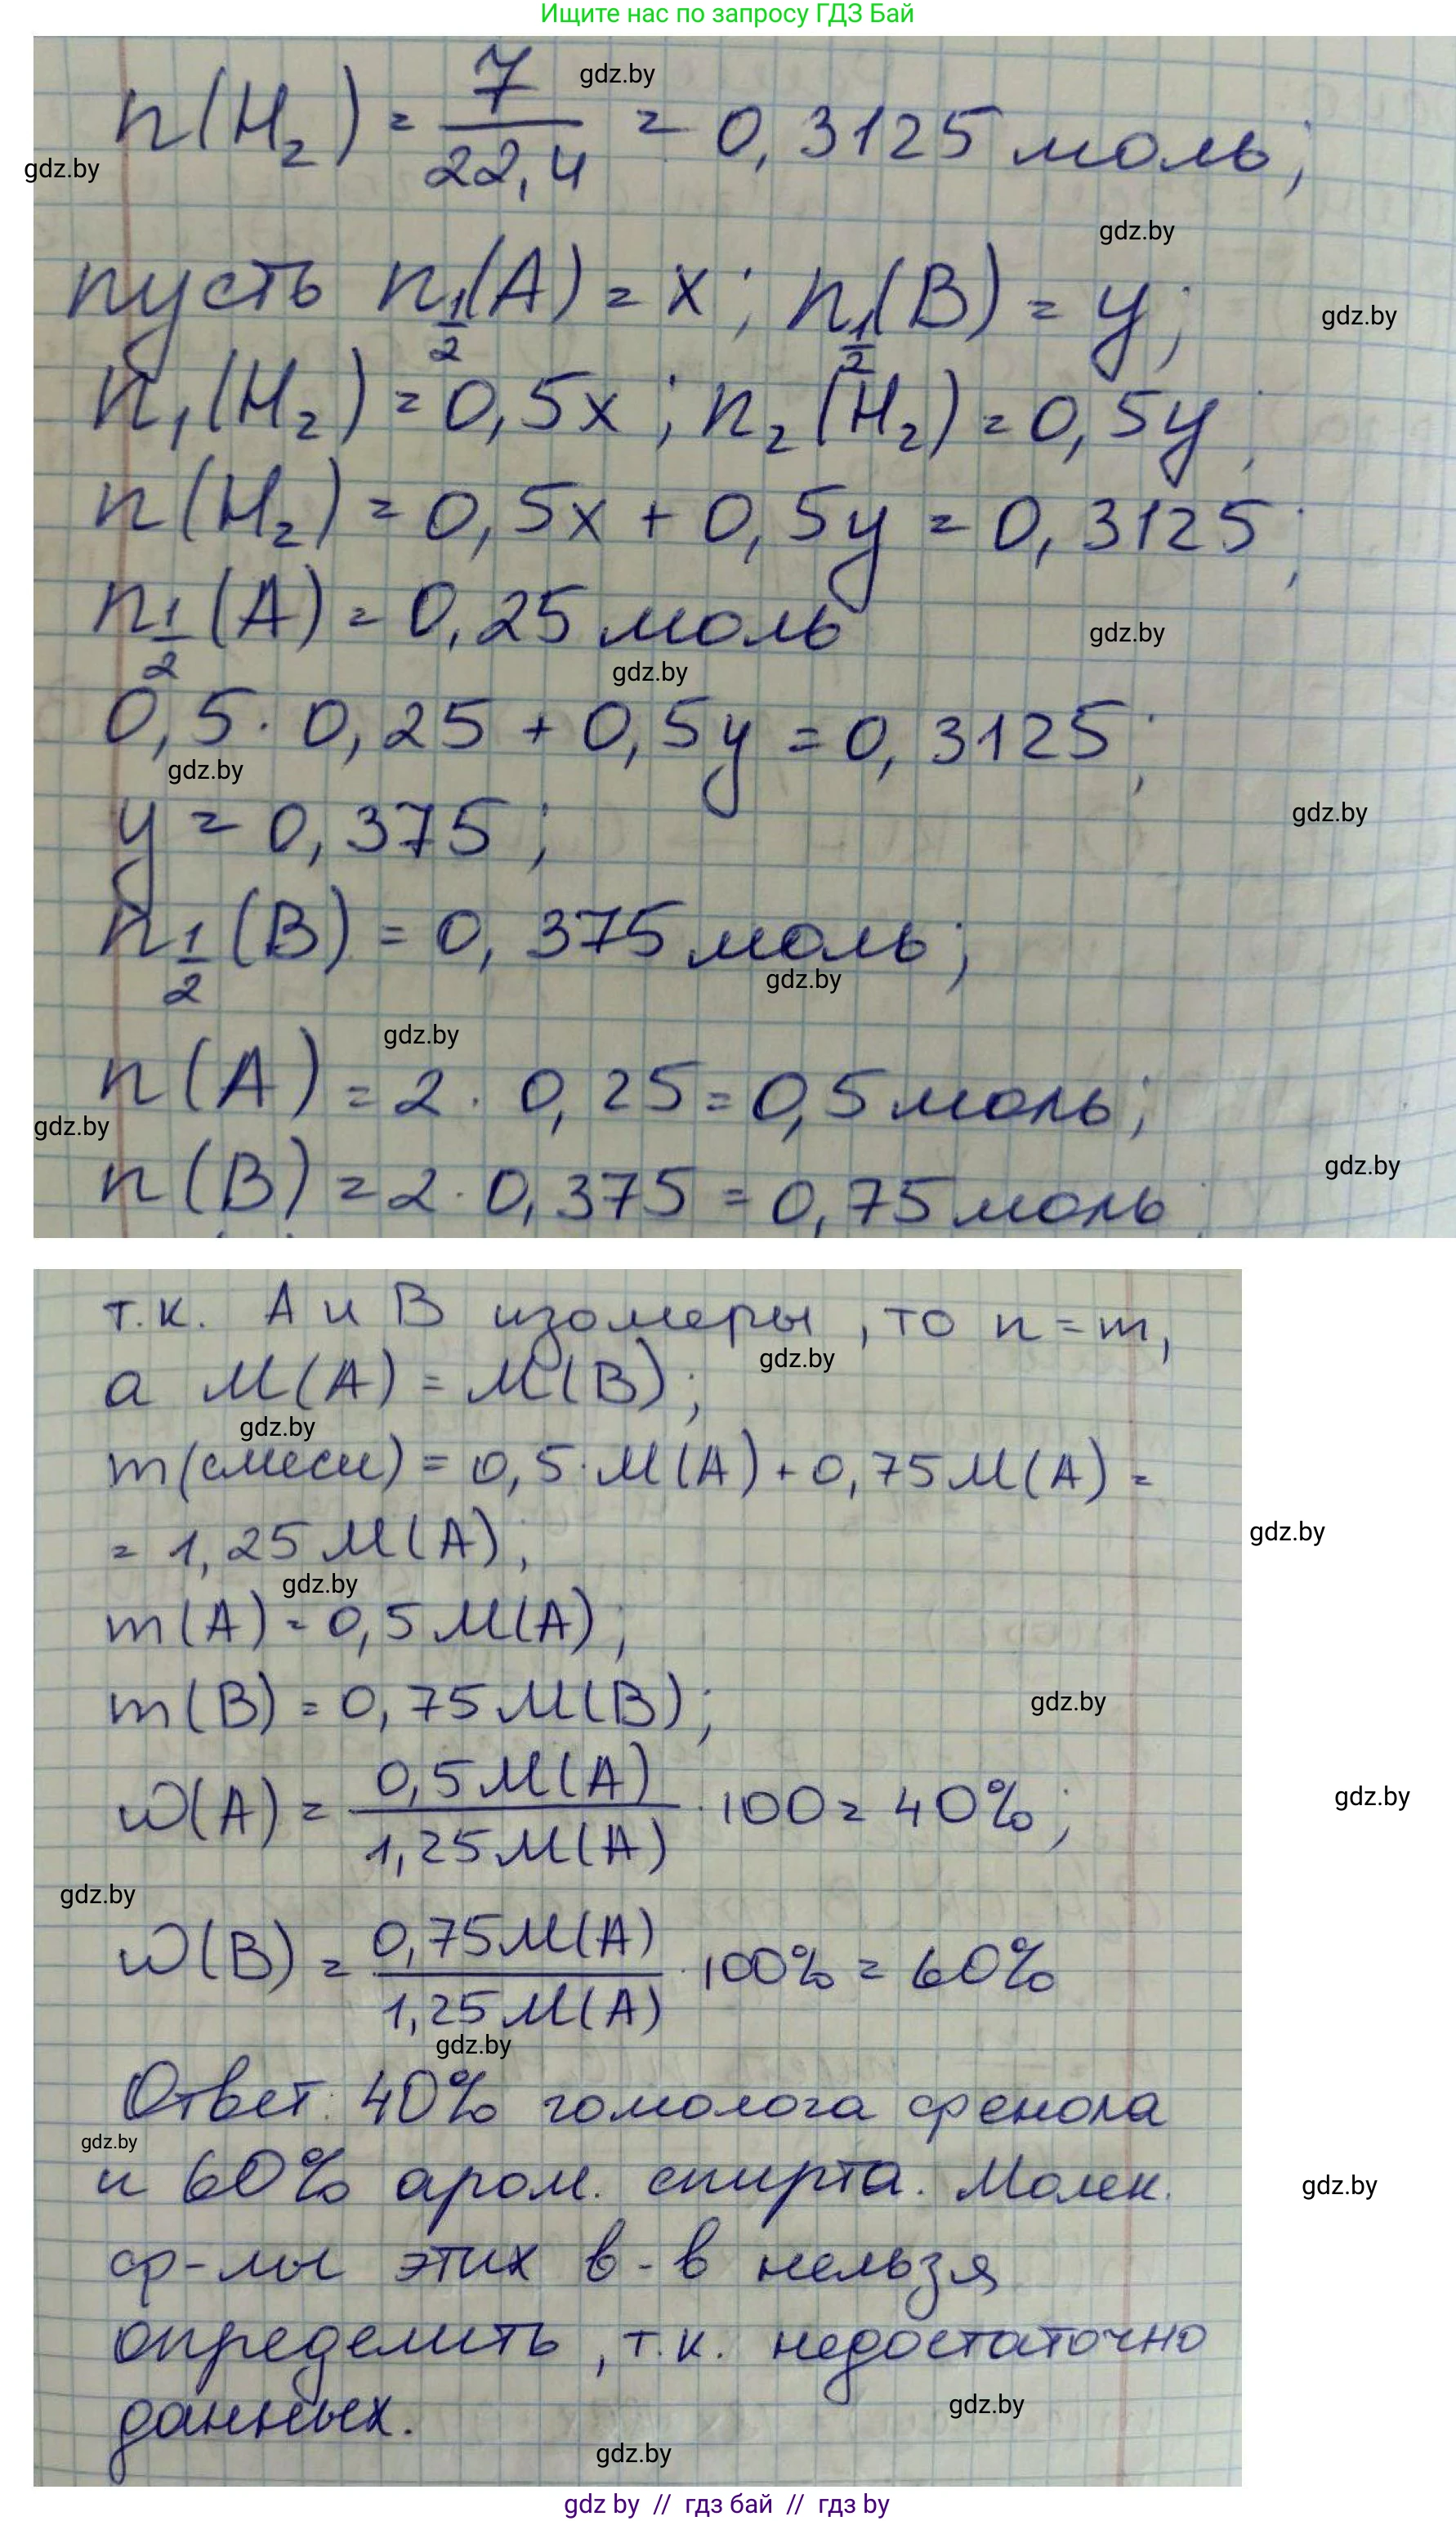 Ищите нас по запросу ГДЗ Бай
n(H₂) = 7/22,4 = 0,3125 моль;
gdz.by
gdz.by
gdz.by
пусть n½(A) = x; n½(B) = y;
gdz.by
n₁(H₂) = 0,5x; n₂(H₂) = 0,5y;
n(H₂) = 0,5x + 0,5y = 0,3125;
n½(A) = 0,25 моль
gdz.by
gdz.by
0,5 · 0,25 + 0,5y = 0,3125;
gdz.by
gdz.by
y = 0,375;
n½(B) = 0,375 моль;
gdz.by
gdz.by
n(A) = 2 · 0,25 = 0,5 моль;
gdz.by
gdz.by
n(B) = 2 · 0,375 = 0,75 моль;
т.к. A и B изомеры, то n = m,
gdz.by
а M(A) = M(B);
gdz.by
m(смеси) = 0,5 · M(A) + 0,75 M(A) =
gdz.by
= 1,25 M(A);
gdz.by
m(A) = 0,5 M(A);
m(B) = 0,75 M(B);
gdz.by
w(A) = 0,5 M(A)/1,25 M(A) · 100 = 40%;
gdz.by
gdz.by
w(B) = 0,75 M(A)/1,25 M(A) · 100% = 60%
gdz.by
Ответ: 40% гомолога фенола
gdz.by
и 60% аром. спирта. Молек.
gdz.by
ф-лы этих в-в нельзя
определить, т.к. недостаточно
gdz.by
данных.
gdz.by
gdz by // гдз бай // гдз by